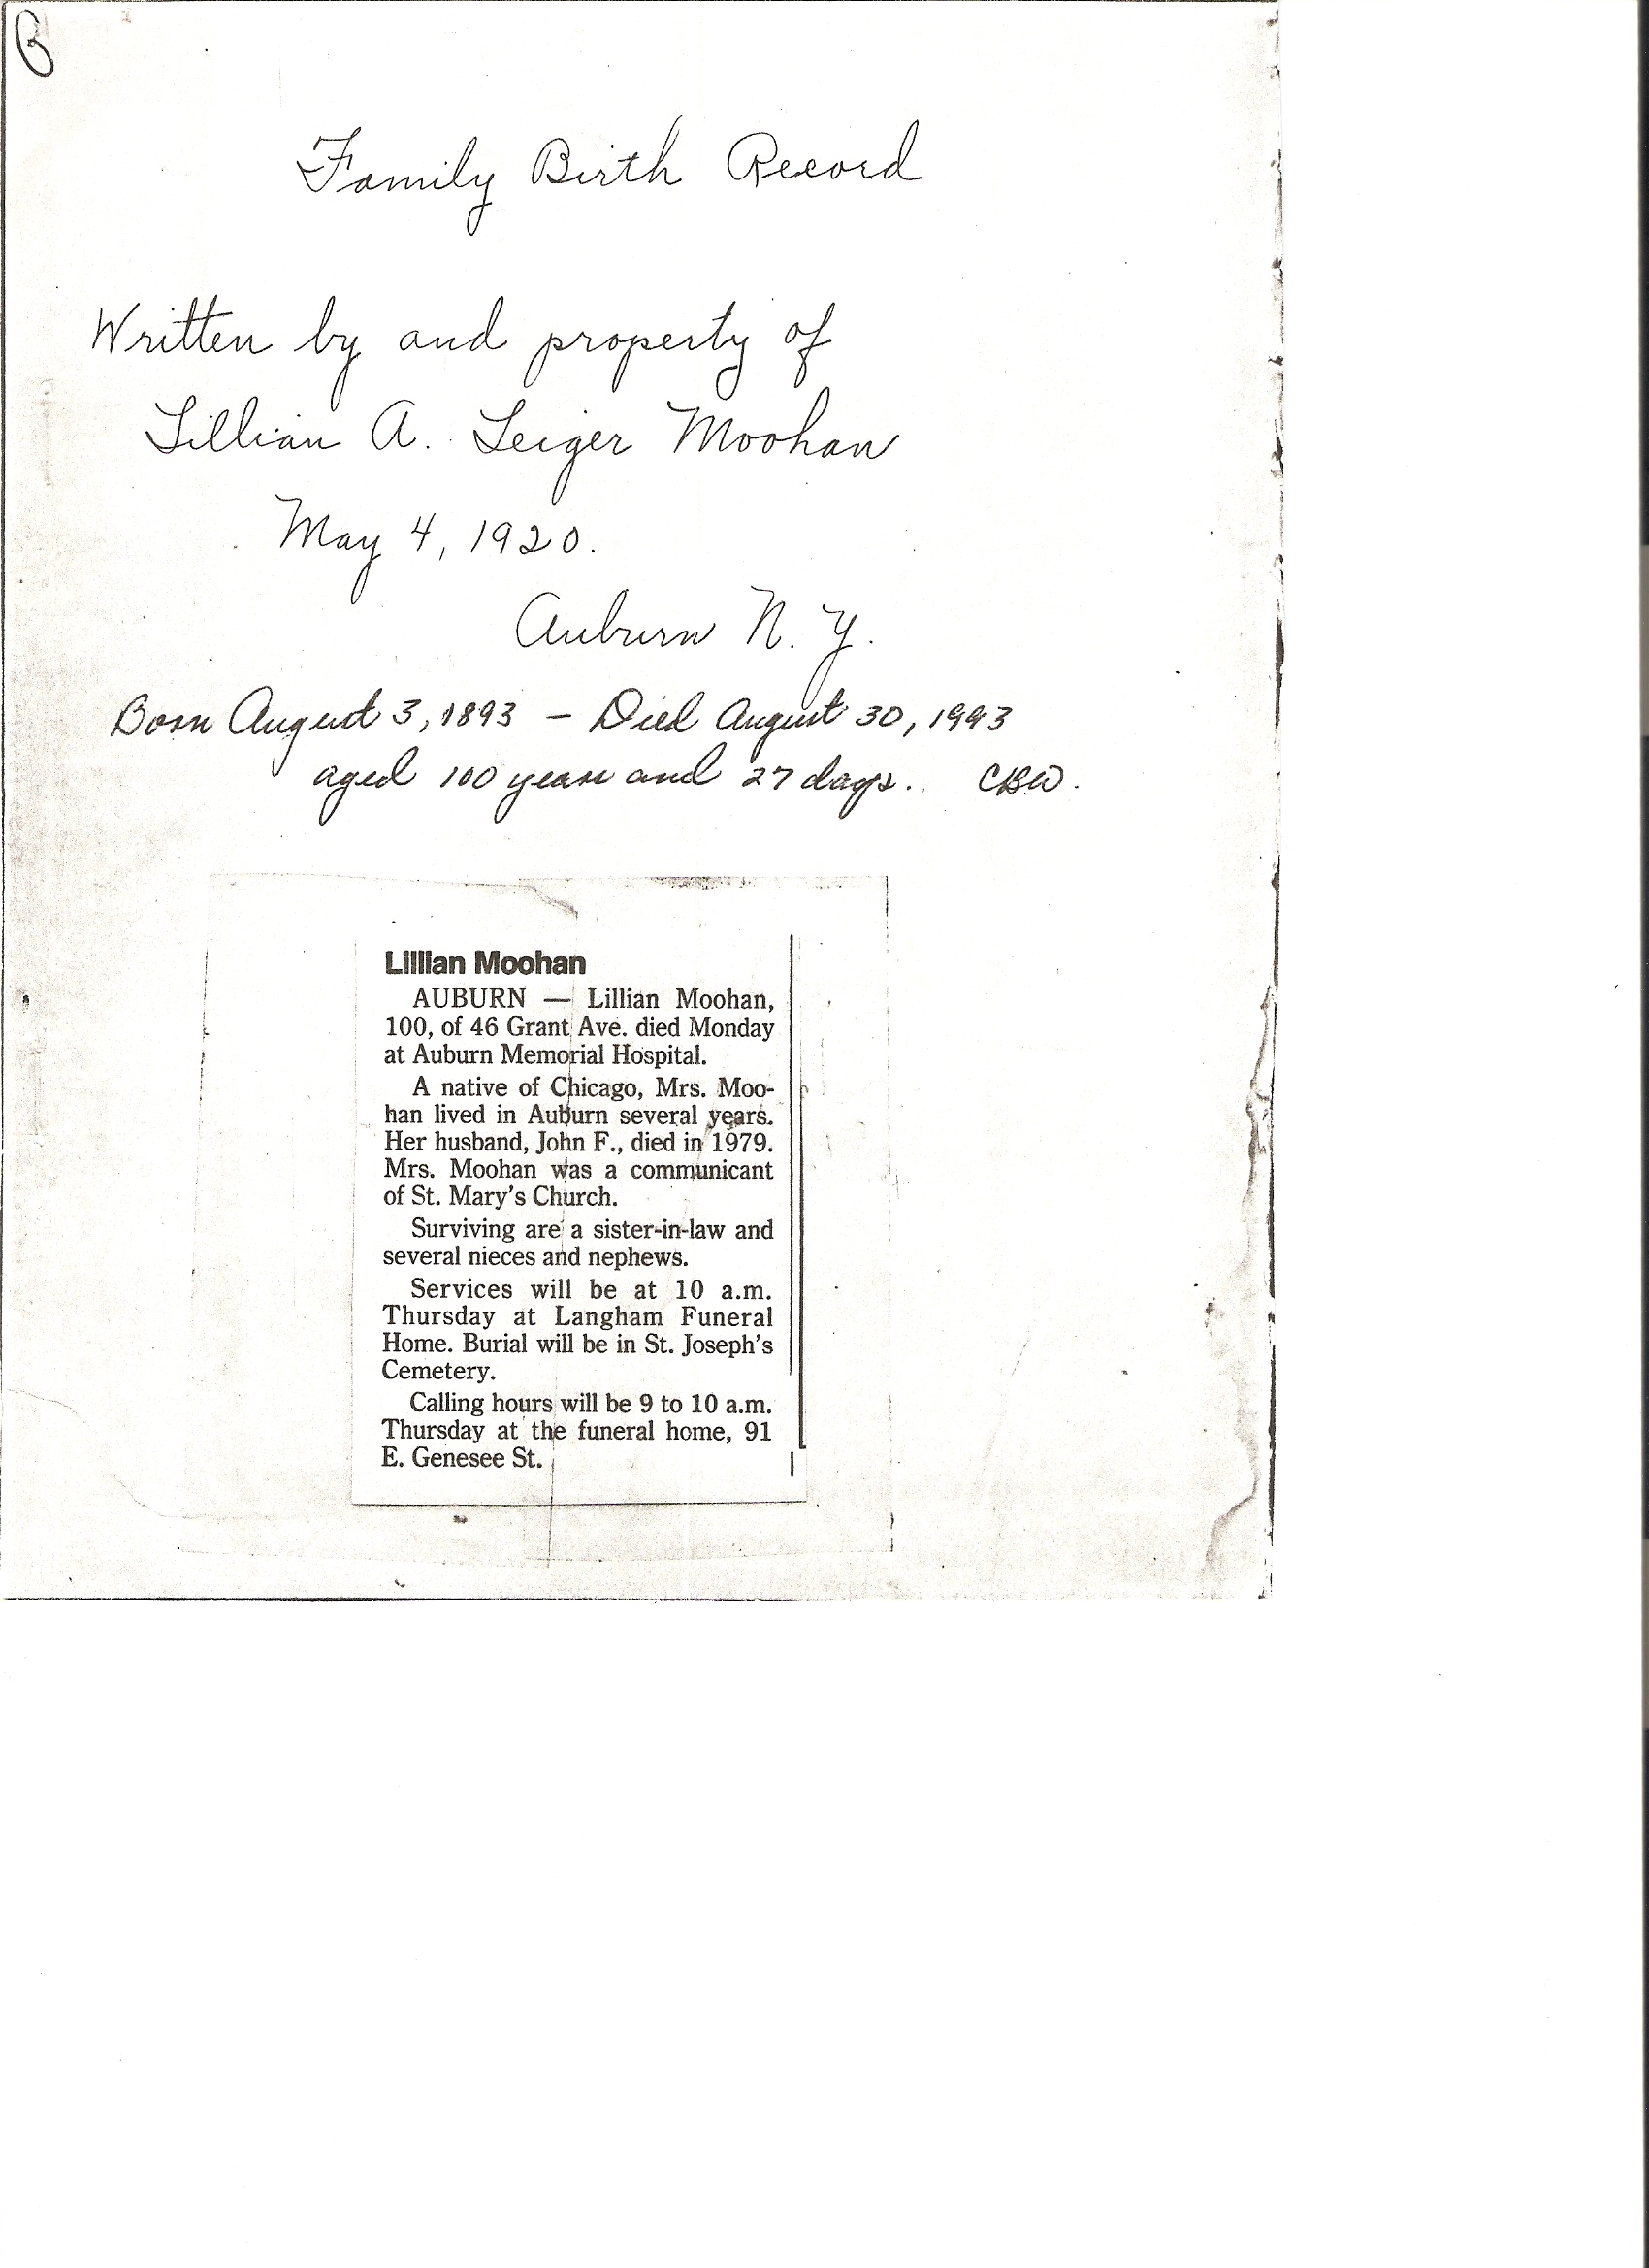 Family Birth Record
Written by and property of
Lillian A. Leiger Moohan
May 4, 1920.
Auburn N. Y.
Born August 3, 1893 – Died August 30, 1993
aged 100 years and 27 days. CBW.
Lillian Moohan
AUBURN — Lillian Moohan,
100, of 46 Grant Ave. died Monday
at Auburn Memorial Hospital.
A native of Chicago, Mrs. Moo-
han lived in Auburn several years.
Her husband, John F., died in 1979.
Mrs. Moohan was a communicant
of St. Mary's Church.
Surviving are a sister-in-law and
several nieces and nephews.
Services will be at 10 a.m.
Thursday at Langham Funeral
Home. Burial will be in St. Joseph's
Cemetery.
Calling hours will be 9 to 10 a.m.
Thursday at the funeral home, 91
E. Genesee St.